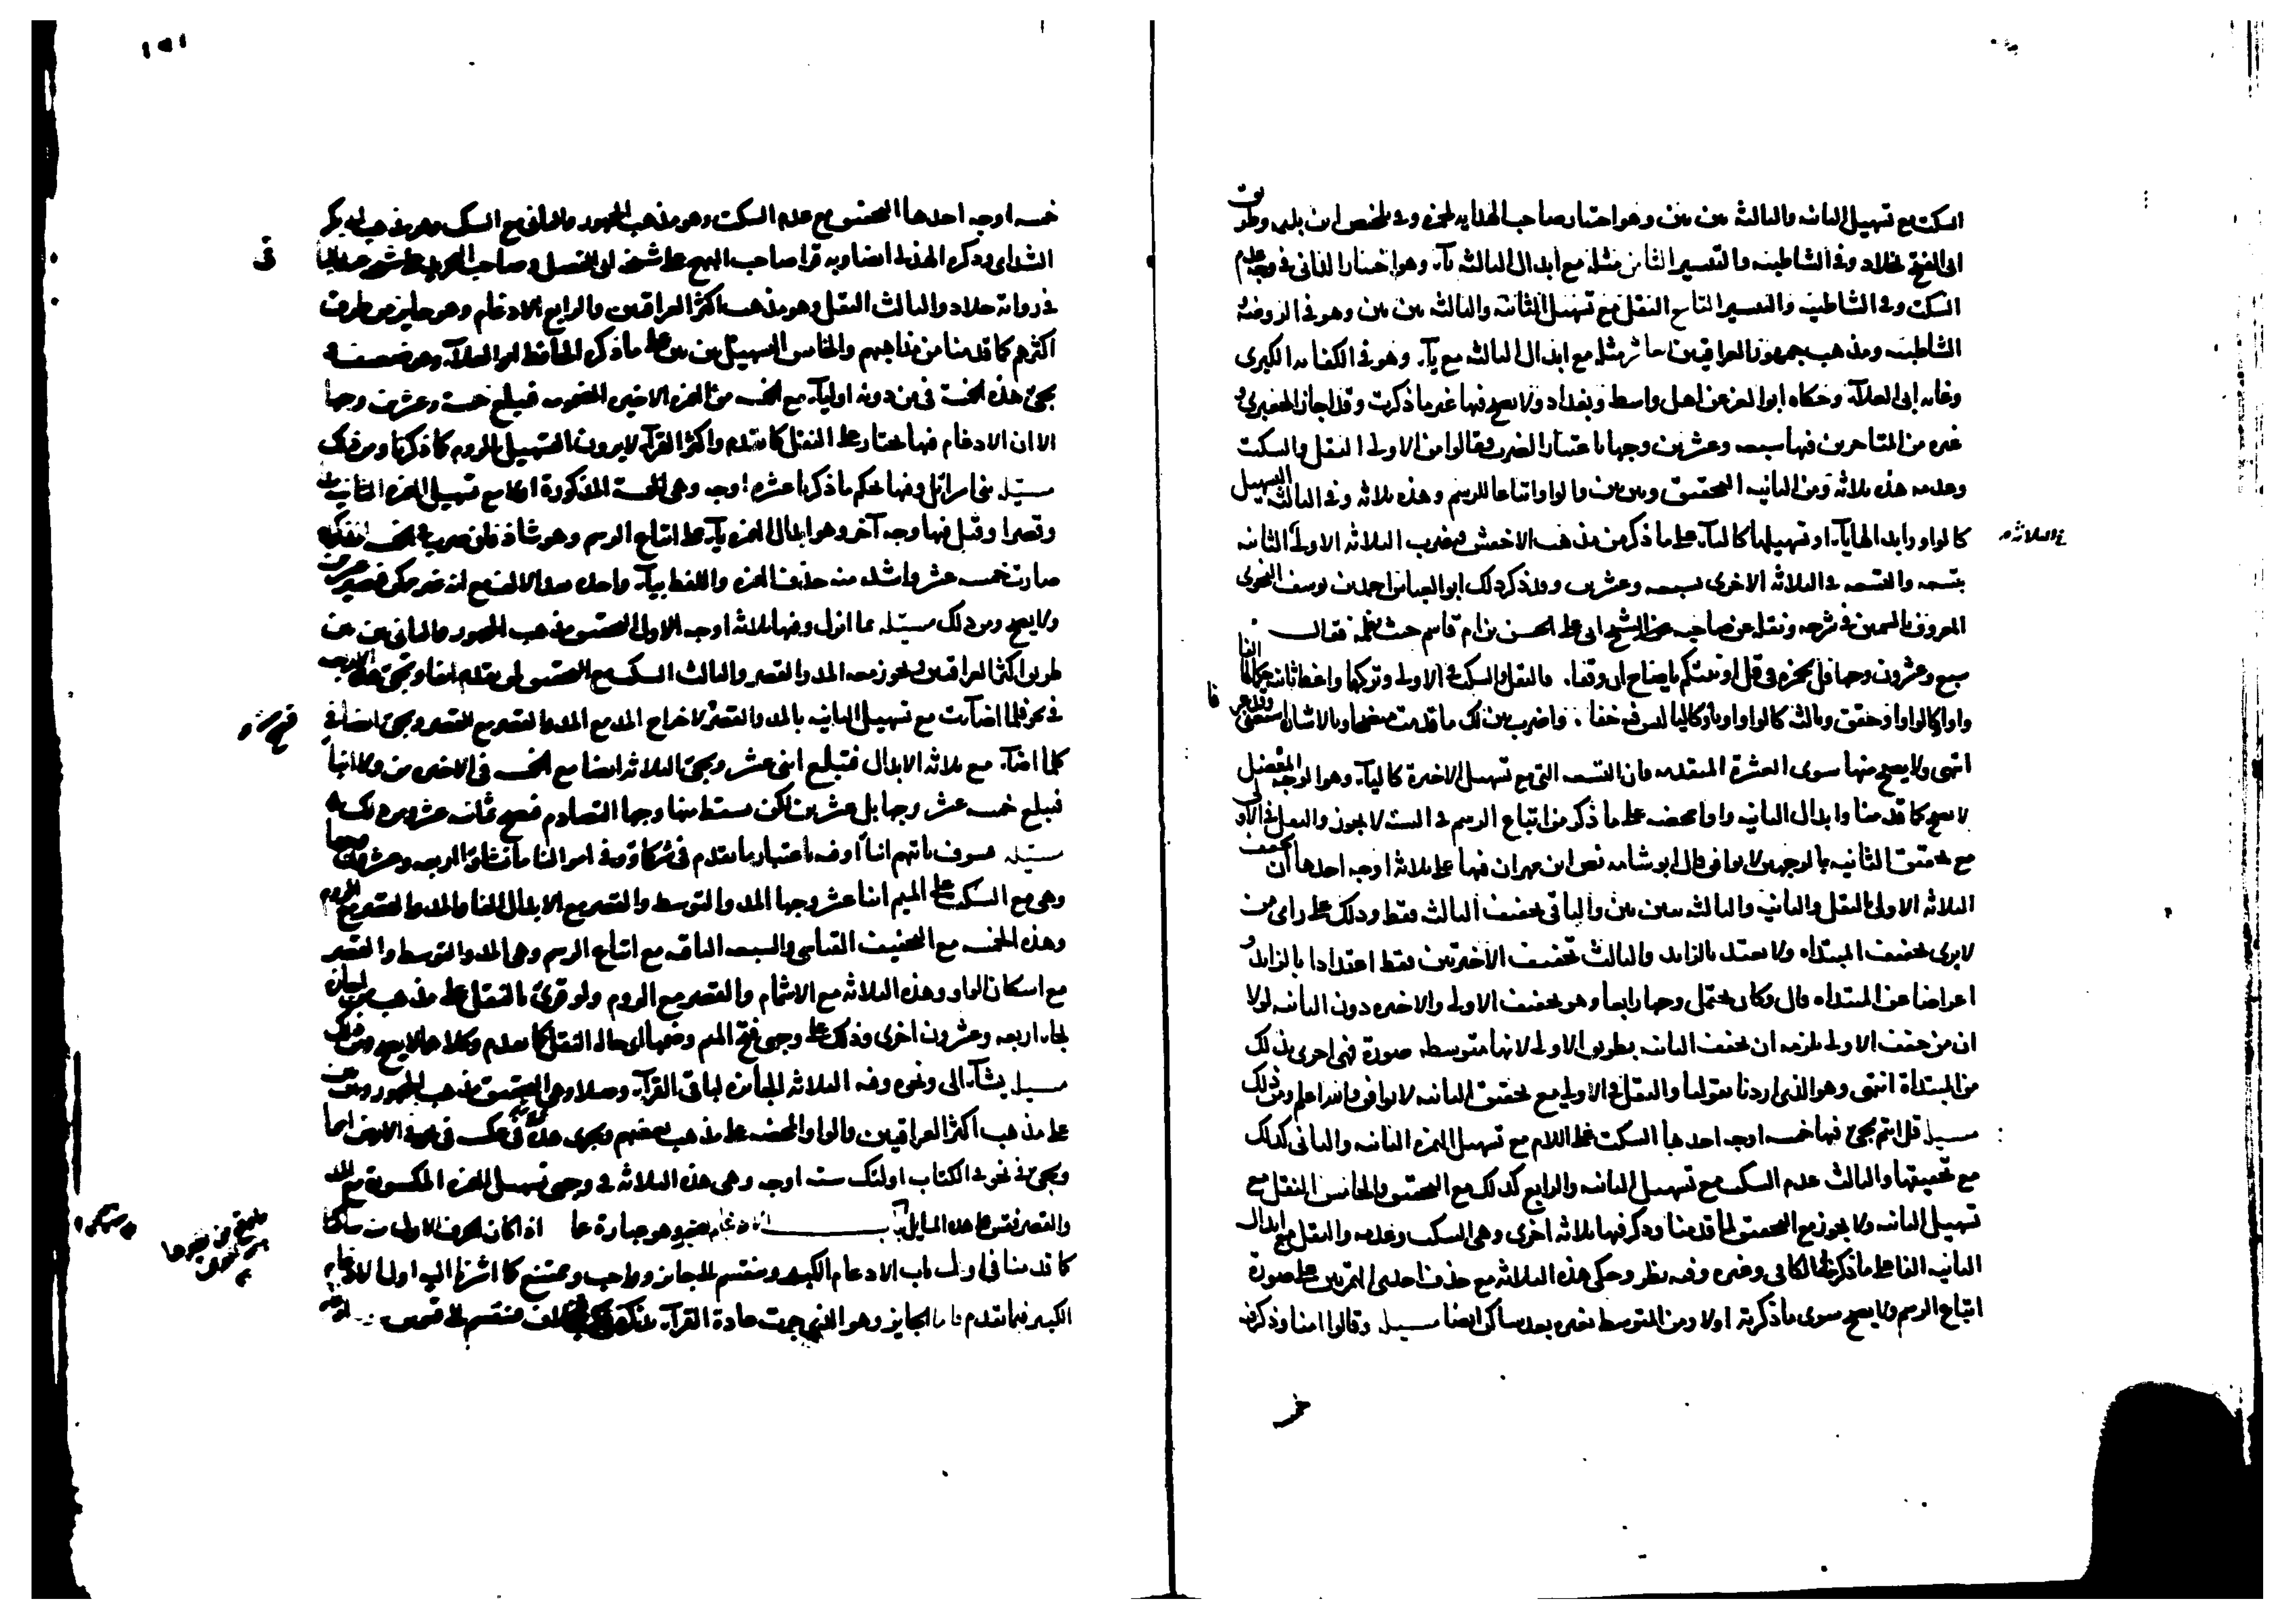 السكت مع تسهيل الثانية والثالثة بين بين وهو اختيار صاحب الهداية لحمزة وفي تلخيص ابن بليمة وطريق
ابي الفتح لخلاد وفي الشاطبية والتيسير الثامن مثله مع ابدال الثالثة ياء وهو اختيار الداني في وجه عدم
السكت وفي الشاطبية والتيسير التاسع النقل مع تسهيل الثانية والثالثة بين بين وهو في الروضة
الشاطبية ومذهب جمهور العراقيين العاشر مثله مع ابدال الثالثة ياء وهو في الكفاية الكبرى
وغاية ابي العلاء وحكاه ابو العز عن اهل واسط وبغداد ولا يصح فيها غير ما ذكرت وقد اجاز الجعبري و
غيره من المتاخرين فيها سبعة وعشرين وجها باعتبار الضرب فقالوا من الاولى النقل والسكت
وعدمه هذه ثلاثة ومن الثانية التحقيق وبين بين والواو اتباعا للرسم وهذه ثلاثة وفي الثالثة التسهيل
كالواو وابدالها ياء او تسهيلها كالياء على ما ذكر من مذهب الاخفش فيضرب الثلاثة الاولى في الثانية
بتسعة والتسعة في الثلاثة الاخرى بسبعة وعشرين وقد ذكر ذلك ابو العباس احمد بن يوسف النحوي
المعروف بالسمين في شرحه ونقله عن صاحبه الشيخ ابي علي الحسن بن ام قاسم حيث نظمه فقال
سبع وعشرون وجها قل لحمزة في قل اونبئكم يا صاح ان وقفا فالنقل والسكت في الاولى وتركهما واعط ثانية حكما لها الفا
واوا وكالواو او حقق وثالثة كالواو او يا وكاليا ليس فيه خفا واضرب يبن لك ما قدمت متضحا وبالاشارة استغنى وقد عرفا
انتهى ولا يصح منها سوى العشرة المتقدمة فان التسعة التي مع تسهيل الاخيرة كالياء وهو الوجه المعضل
لا يصح كما قدمنا وابدال الثانية واوا محضة على ما ذكر من اتباع الرسم في الستة لا يجوز والنقل في الاولى
مع تحقيق الثانية بالوجهين لا يوافق قال ابو شامة نص ابن مهران فيها على ثلاثة اوجه احدها ان تخفف
الثلاثة الاولى بالنقل والثانية والثالثة ببين بين والثاني تخفيف الثالثة فقط وذلك على راي من
لا يرى تخفيف المبتداة ولا يعتد بالزايد والثالث تخفيف الاخيرتين فقط اعتدادا بالزايد و
اعراضا عن المبتداة قال وكان يحتمل وجها رابعا وهو تخفيف الاولى والاخيرة دون الثانية لولا
ان من خفف الاولى يلزمه ان يخفف الثانية بطريق الاولى لانها متوسطة صورة فهي احرى بذلك
من المبتداة انتهى وهو الذي اردنا بقولنا والنقل في الاولى مع تحقيق الثانية لا يوافق والله اعلم ومن ذلك
مسيلة قل اانتم يجيء فيها خمسة اوجه احدها السكت على اللام مع تسهيل الهمزة الثانية والثاني كذلك
مع تحقيقها والثالث عدم السكت مع تسهيل الثانية والرابع كذلك مع التحقيق والخامس النقل مع
تسهيل الثانية ولا يجوز مع التحقيق لما قدمنا وذكر فيها ثلاثة اخرى وهي السكت وعدمه والنقل مع ابدال
الثانية الفا على ما ذكر في الكافي وغيره وفيه نظر وحكي هذه الثلاثة مع حذف احدى الهمزتين على صورة
اتباع الرسم ولا يصح سوى ما ذكرته اولا ومن المتوسط بغيره بعد ساكن ايضا مسيلة وقالوا امنا وذكر في
خمسة اوجه احدها التحقيق مع عدم السكت وهو مذهب الجمهور والثاني مع السكت وهو مذهب ابي بكر
الشذاي وذكره الهذلي ايضا وبه قرا صاحب المبهج على شيخه ابي الفضل وصاحب التجريد على شيخه عبد الباقي
في رواية خلاد والثالث النقل وهو مذهب اكثر العراقيين والرابع الادغام وهو جايز من طرق
اكثرهم كما قدمنا من مذاهبهم والخامس التسهيل بين بين على ما ذكره الحافظ ابو العلاء وهو ضعيف
يجيء هذه الخمسة في من دونه اولياء مع الخمسة من الهمزة الاخيرة المضمومة فيبلغ خمسة وعشرين وجها
الا ان الادغام فيها يختار على النقل كما تقدم واكثر القراء لا يرون التسهيل بالروم كما ذكرنا ومن ذلك
مسيلة بني اسرائل وفيها بحكم ما ذكرنا عشرة اوجه وهي الخمسة المذكورة انفا مع تسهيل الهمزة الثانية مدا
وقصرا وقيل فيها وجه آخر وهو ابدال الهمزة ياء على اتباع الرسم وهو شاذ فان ضرب في الخمسة المتقدمة
صارت خمسة عشر واشذ منه حذف الهمزة واللفظ بياء واحدة بعد الالف مع انه غير ممكن فيصير عشرين
ولا يصح ومن ذلك مسيلة بما انزل وفيها ثلاثة اوجه الاول التحقيق مذهب الجمهور والثاني بين بين
طريق اكثر العراقيين ويجوز معه المد والقصر والثالث السكت مع التحقيق لمن تقدم انفا ويجيء هذه الاوجه
في نحو فلما اضاءت مع تسهيل الثانية بالمد والقصر لاخراج المد مع المد والقصر مع القصر ويجيء ايضا في
كلما اضاء مع ثلاثة الابدال فتبلغ اثنى عشر ويجيء الثلاثة ايضا مع الخمسة في الاخيرة من ولا ابنا
فيبلغ خمسة عشر وجها بل عشرين لكن يسقط منها وجها التصادم فيصح ثمانية عشر ومن ذلك
مسيلة فسوف ياتيهم انباؤا وفيه باعتبار ما تقدم في شركاؤا وفي اموالنا ما نشاؤا اربعة وعشرون وجها
وهي مع السكت على الميم اثنا عشر وجها المد والتوسط والقصر مع الابدال الفا والمد والقصر مع الروم
وهذه الخمسة مع التخفيف القياسي والسبعة الباقية مع اتباع الرسم وهي المد والتوسط والقصر
مع اسكان الواو وهذه الثلاثة مع الاشمام والقصر مع الروم ولو قرئ بالنقل على مذهب من اجازه
لجاء اربعة وعشرون اخرى وذلك على وجهي فتح الميم وضمها في حالة النقل كما تقدم وكلاهما لا يصح ومن ذلك
مسيلة يشاء الى ونحوه وفيه الثلاثة الجائزة لباقي القراء وصلا وهي التحقيق مذهب الجمهور وبين بين
على مذهب اكثر العراقيين والواو المحضة على مذهب بعضهم ويجري هذه في عكسه في نحو في الارض امما
ويجيء في نحو في الكتاب اولئك ستة اوجه وهي هذه الثلاثة في وجهي تسهيل الهمزة المكسورة مع المد
والقصر فقس على هذه المسايل باب الادغام الصغير وهو عبارة عما اذا كان الحرف الاول منه ساكنا
كما قدمنا في اول باب الادغام الكبير وينقسم الى جايز وواجب وممتنع كما اشرنا اليه اول الادغام
الكبير فيما تقدم فاما الجايز وهو الذي جرت عادة القراء بذكره في كتب الخلاف فينقسم الى قسمين